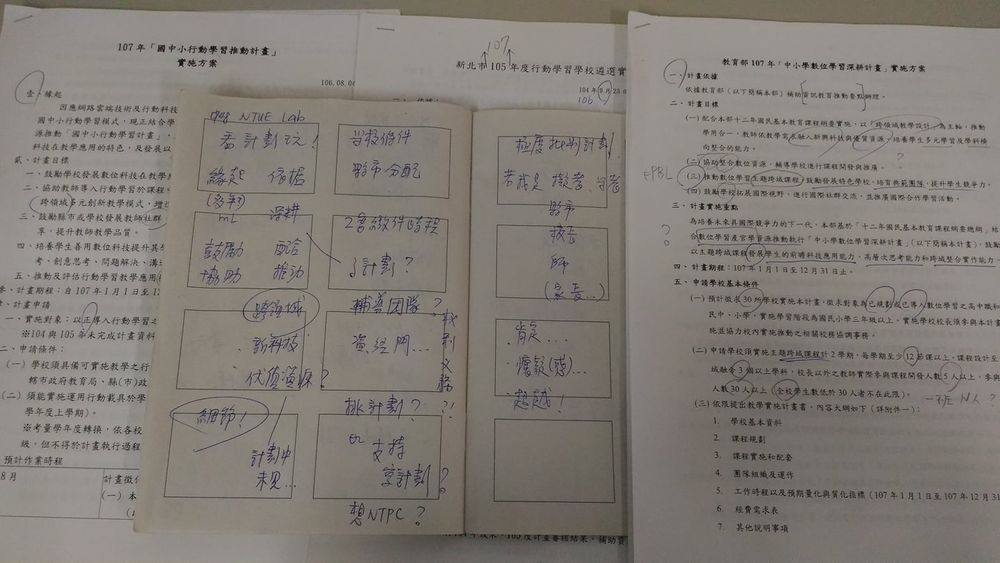 107 年「國中小行動學習推動計畫」
實施方案
106.08.0
壹、緣起
因應網路雲端技術及行動科技
國中小行動學習模式，現正結合學
源推動「國中小行動學習計畫」，
科技在教學應用的特色，及發展以
貳、計畫目標
一、鼓勵學校發展數位科技在教學
二、協助教師導入行動學習於課程
跨領域多元創新教學模式，增
三、鼓勵縣市或學校發展教師社群
享，提升教師教學品質。
四、培養學生善用數位科技提升其
考、創意思考、問題解決、溝
五、推動及評估行動學習教學應用
計畫期程：自 107 年 1 月 1 日至 12
計畫申請
一、實施對象：以正導入行動學習之
※104 與 105 年未完成計畫資料
二、申請條件：
(一) 學校須具備可實施教學之行
轄市政府教育局、縣(市)政
(二) 須能實施運用行動載具於學
學年度上學期)。
※考量學年度轉換，依各校
級，但不得於計畫執行過程
預計作業時程
8 月
計畫徵
(一) 本
107
新北市 105 年度行動學習學校遴選實
104 年
106
NTUE Lab
看計劃 玩！
緣起 依據
mL 深耕
鼓勵 配合
協助 推動
跨領域
新科技
優質資源？
細節！
計劃中
未見...
當投條件
縣市分配
了計劃？
輔導團隊？
資經門...
挑計劃？?!
or 支持
寫計劃？
想NTPC？
極度批判計劃！
縣市
校長
師
(家長...)
肯定...
懷疑(惑)...
超越！
教育部 107 年「中小學數位學習深耕計畫」實施方案
一、計畫依據
依據教育部 (以下簡稱本部) 補助資訊教育推動要點辦理。
二、計畫目標
(一) 配合本部十二年國民基本教育課程綱要實施，以「跨領域教學設計」為主軸，推動
學用合一。教師依教學需求融入新興科技與優質資源，培養學生多元學習及學科橫
向整合的能力。
?
(二) 協助整合數位資源，輔導學校進行課程開發與推廣。
PBL
(三) 推動數位學習主題跨域課程，鼓勵發展特色學校、培育典範團隊，提升學生競爭力。
(四) 鼓勵學校拓展國際視野、進行國際社群交流，並推廣國際合作學習活動。
三、計畫實施重點
?
為培養未來具國際競爭力的下一代，本部基於「十二年國民基本教育課程綱要總綱」結
合數位學習產官學資源推動執行「中小學數位學習深耕計畫」(以下簡稱本計畫)，鼓勵
以主題跨域課程發展學生的前瞻科技應用能力、高層次思考能力和跨域整合實作能力。
四、計畫期程：107 年 1 月 1 日至 12 月 31 日止。
五、申請學校基本條件
(一) 預計徵求 30 所學校實施本計畫，徵求對象為已規劃或已導入數位學習之高中職和
民中、小學，實施學習階段為國民小學三年級以上，實施學校校長須參與本計畫
施並協助校內實施推動之相關校務協調事務。
(二) 申請學校須實施主題跨域課程計 2 學期，每學期至少 12 節課以上，課程設計至
域融合 3 個以上學科，校長以外之教師實際參與課程開發人數 5 人以上，參與
人數 30 人以上 (全校學生數低於 30 人者不在此限)。
一班 N人？
(三) 依限提出教學實施計畫書，內容大綱如下 (詳附件一)：
1. 學校基本資料
2. 課程規劃
3. 課程實施和配套
4. 團隊組織及運作
5. 工作時程以及預期量化與質化指標 (107 年 1 月 1 日至 107 年 12 月 31
6. 經費需求表
7. 其他說明事項